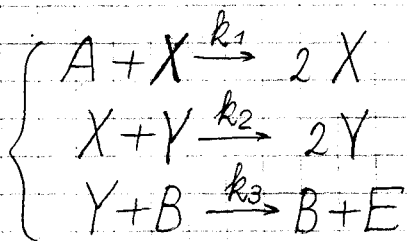 A + X \xrightarrow{k_1} 2 X
X + Y \xrightarrow{k_2} 2 Y
Y + B \xrightarrow{k_3} B + E